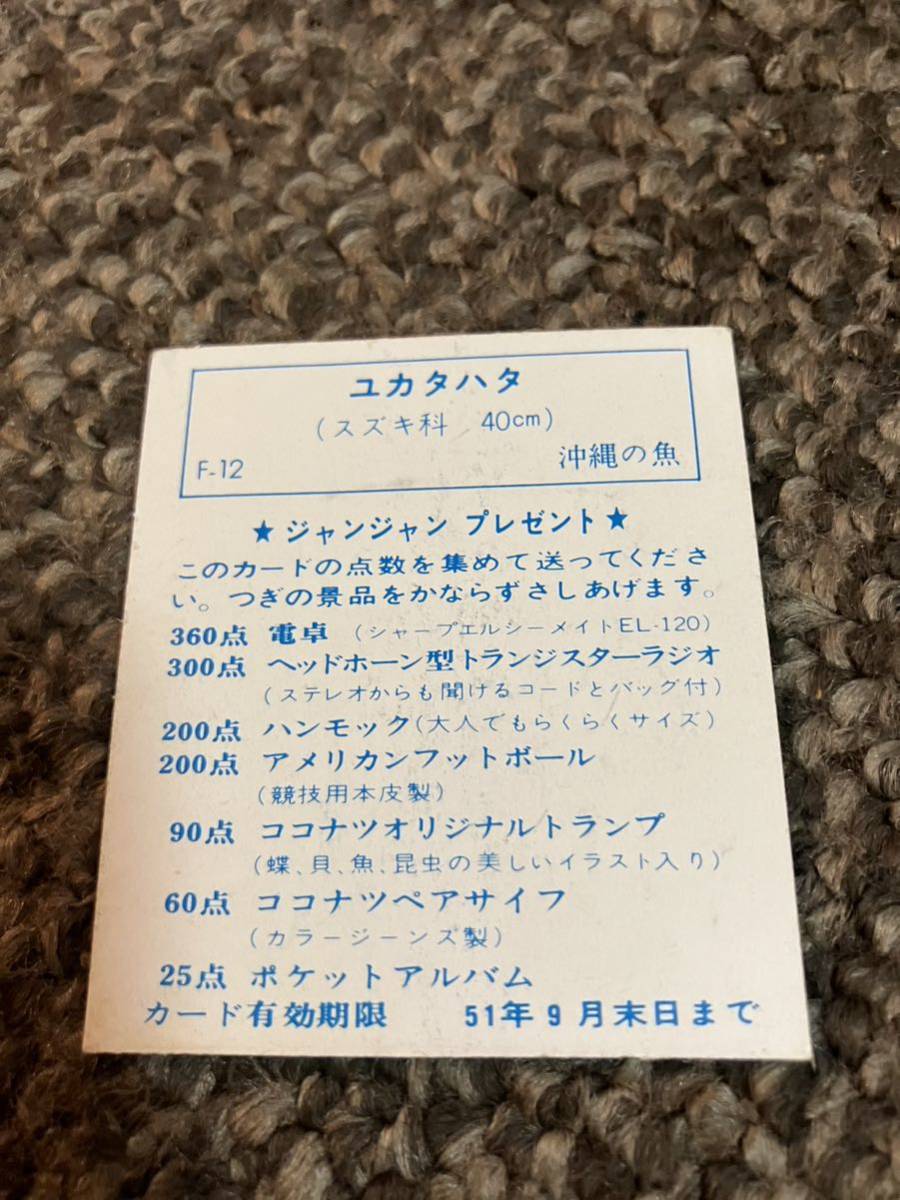 ユカタハタ
(スズキ科 40cm)
F-12 沖縄の魚
★ ジャンジャン プレゼント ★
このカードの点数を集めて送ってくださ
い。つぎの景品をかならずさしあげます。
360点 電卓 (シャープエルシーメイトEL-120)
300点 ヘッドホーン型トランジスターラジオ
(ステレオからも聞けるコードとバッグ付)
200点 ハンモック(大人でもらくらくサイズ)
200点 アメリカンフットボール
(競技用本皮製)
90点 ココナツオリジナルトランプ
(蝶、貝、魚、昆虫の美しいイラスト入り)
60点 ココナツペアサイフ
(カラージーンズ製)
25点 ポケットアルバム
カード有効期限 51年9月末日まで